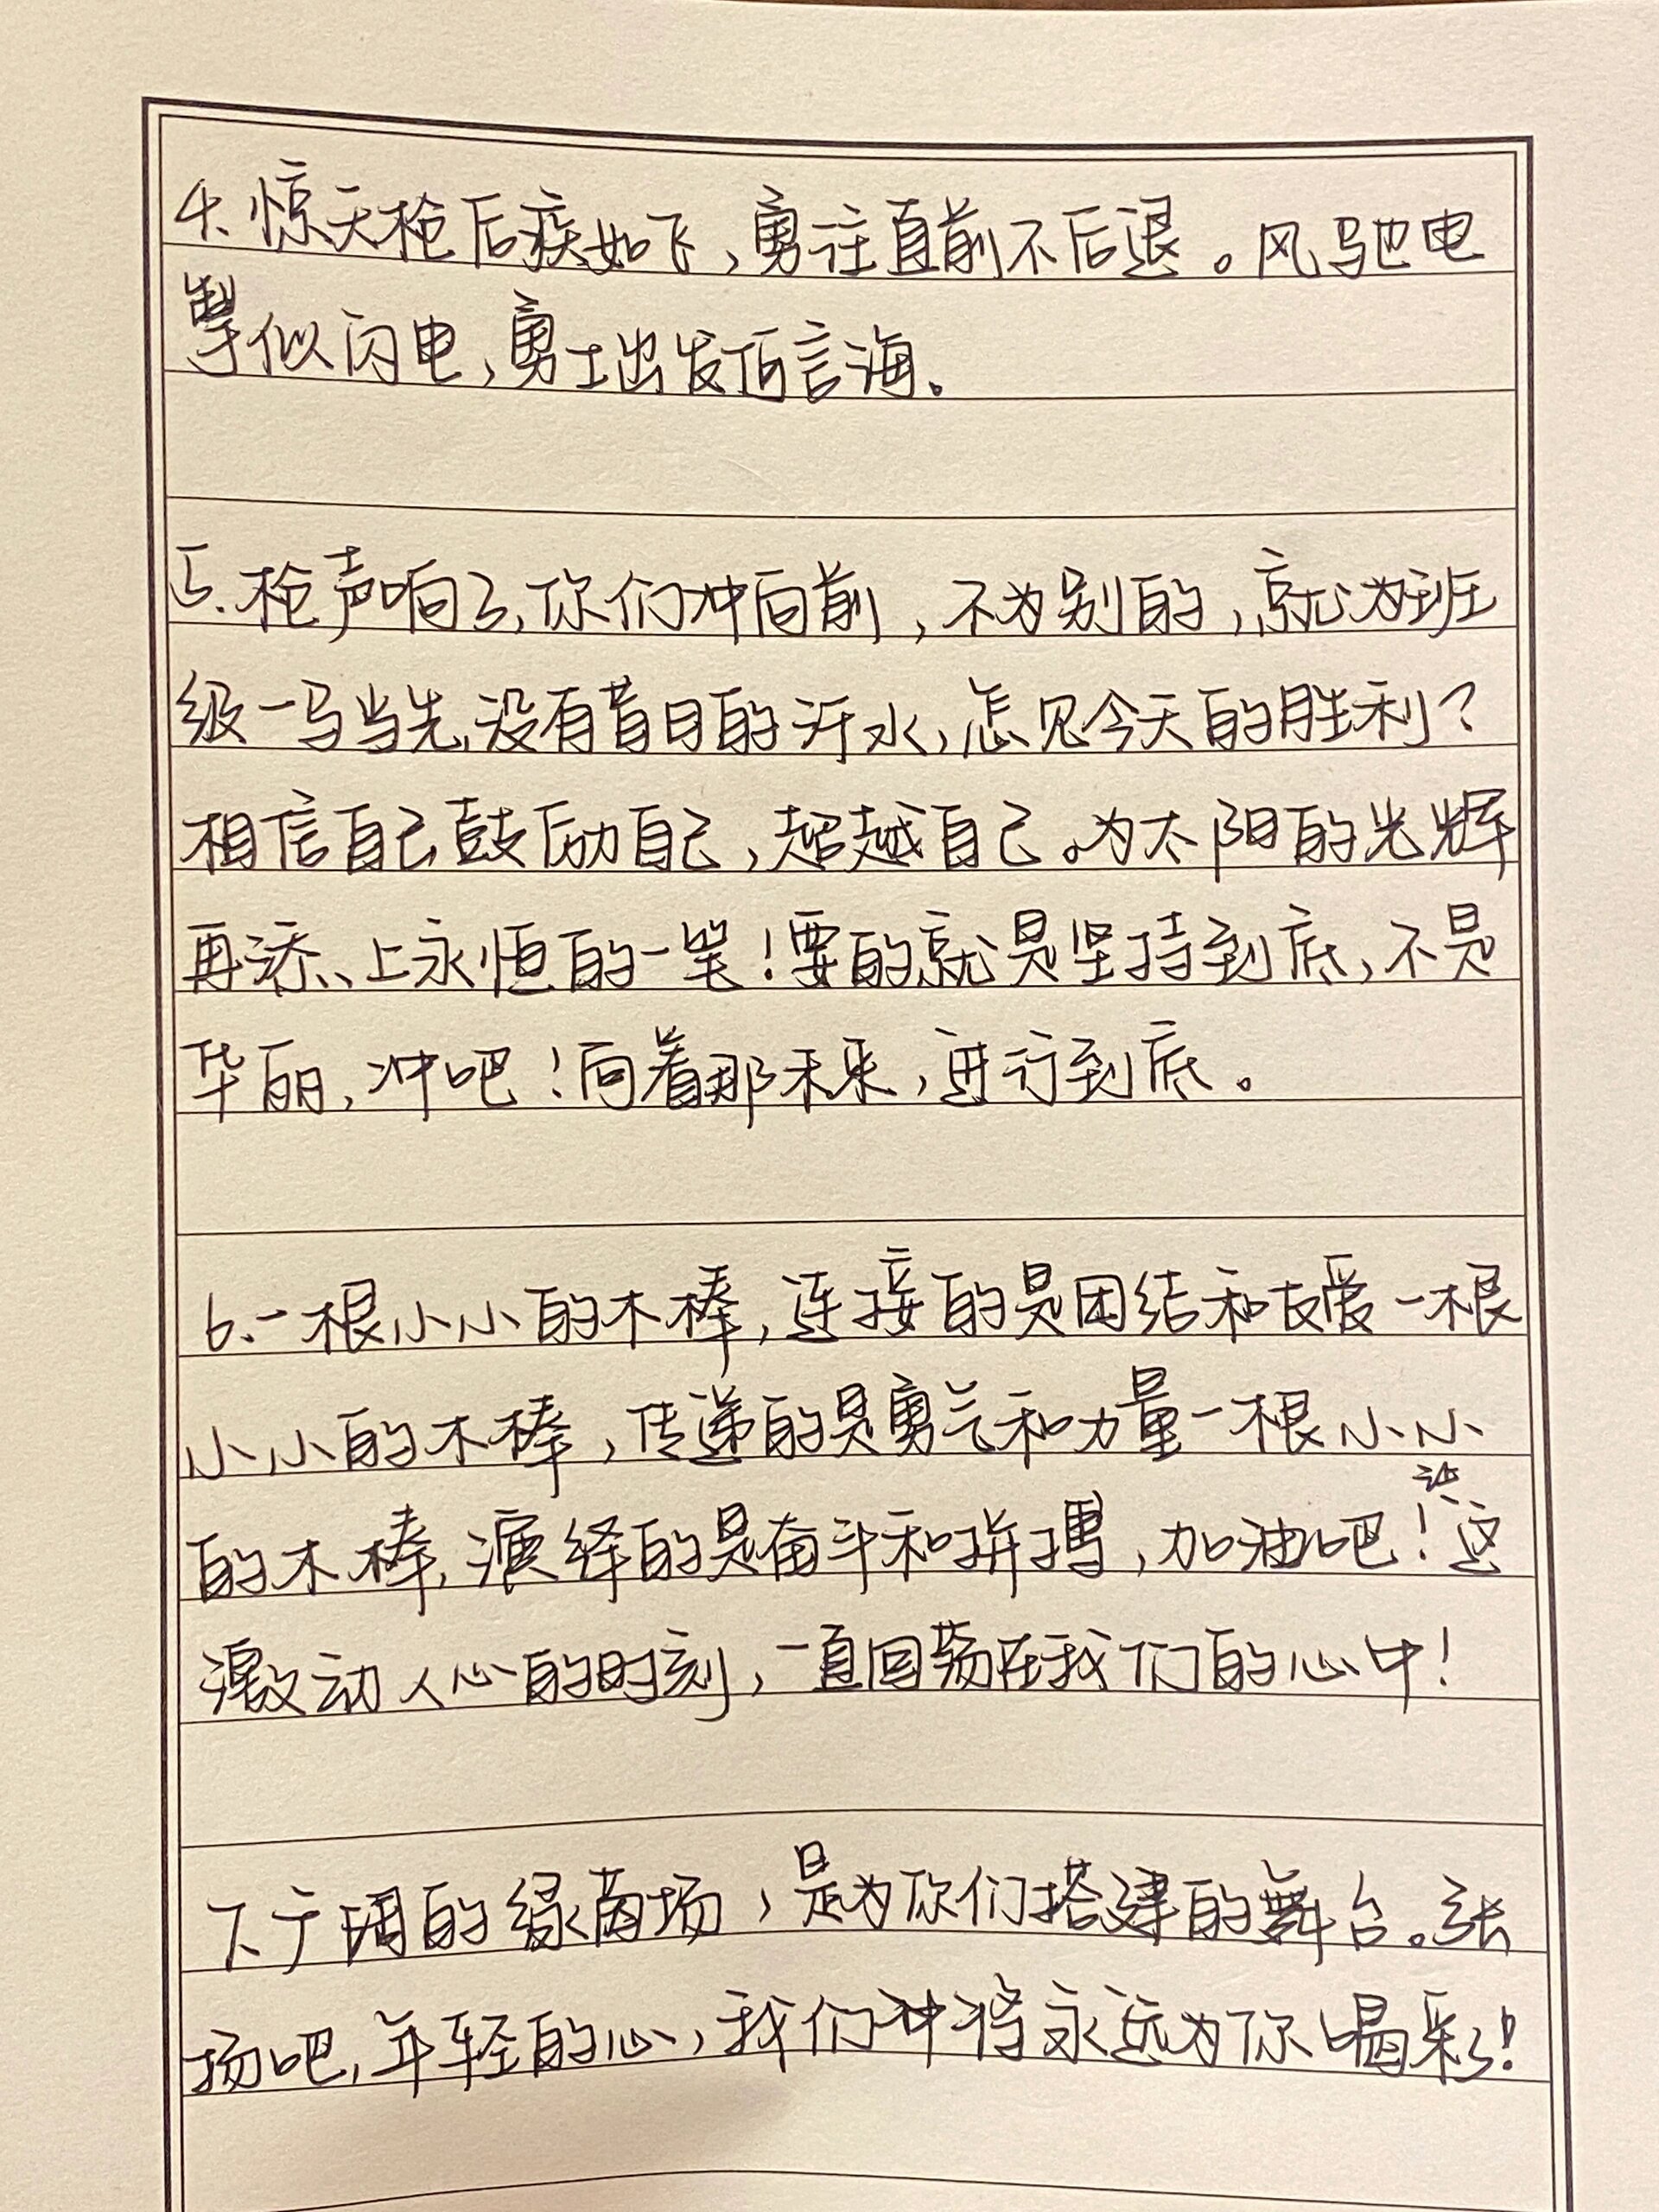 4.惊天枪后疾如飞,勇往直前不后退。风驰电
掣似闪电,勇士出发百言海.
5.枪声响了,你们冲向前,不为别的,就为班
级一马当先,没有昔日的汗水,怎见今天的胜利?
相信自己鼓励自己,超越自己。为太阳的光辉
再添上永恒的一笔!要的就是坚持到底,不是
华丽,冲吧!向着那未来,进行到底。
6.一根小小的木棒,连接的是团结和友爱一根
小小的木棒,传递的是勇气和力量一根小小
的木棒,演绎的是奋斗和拼搏,加油吧!这
激动人心的时刻,一直回荡在我们的心中!
7.广阔的绿茵场,是为你们搭建的舞台。张
扬吧,年轻的心,我们将永远为你喝彩!